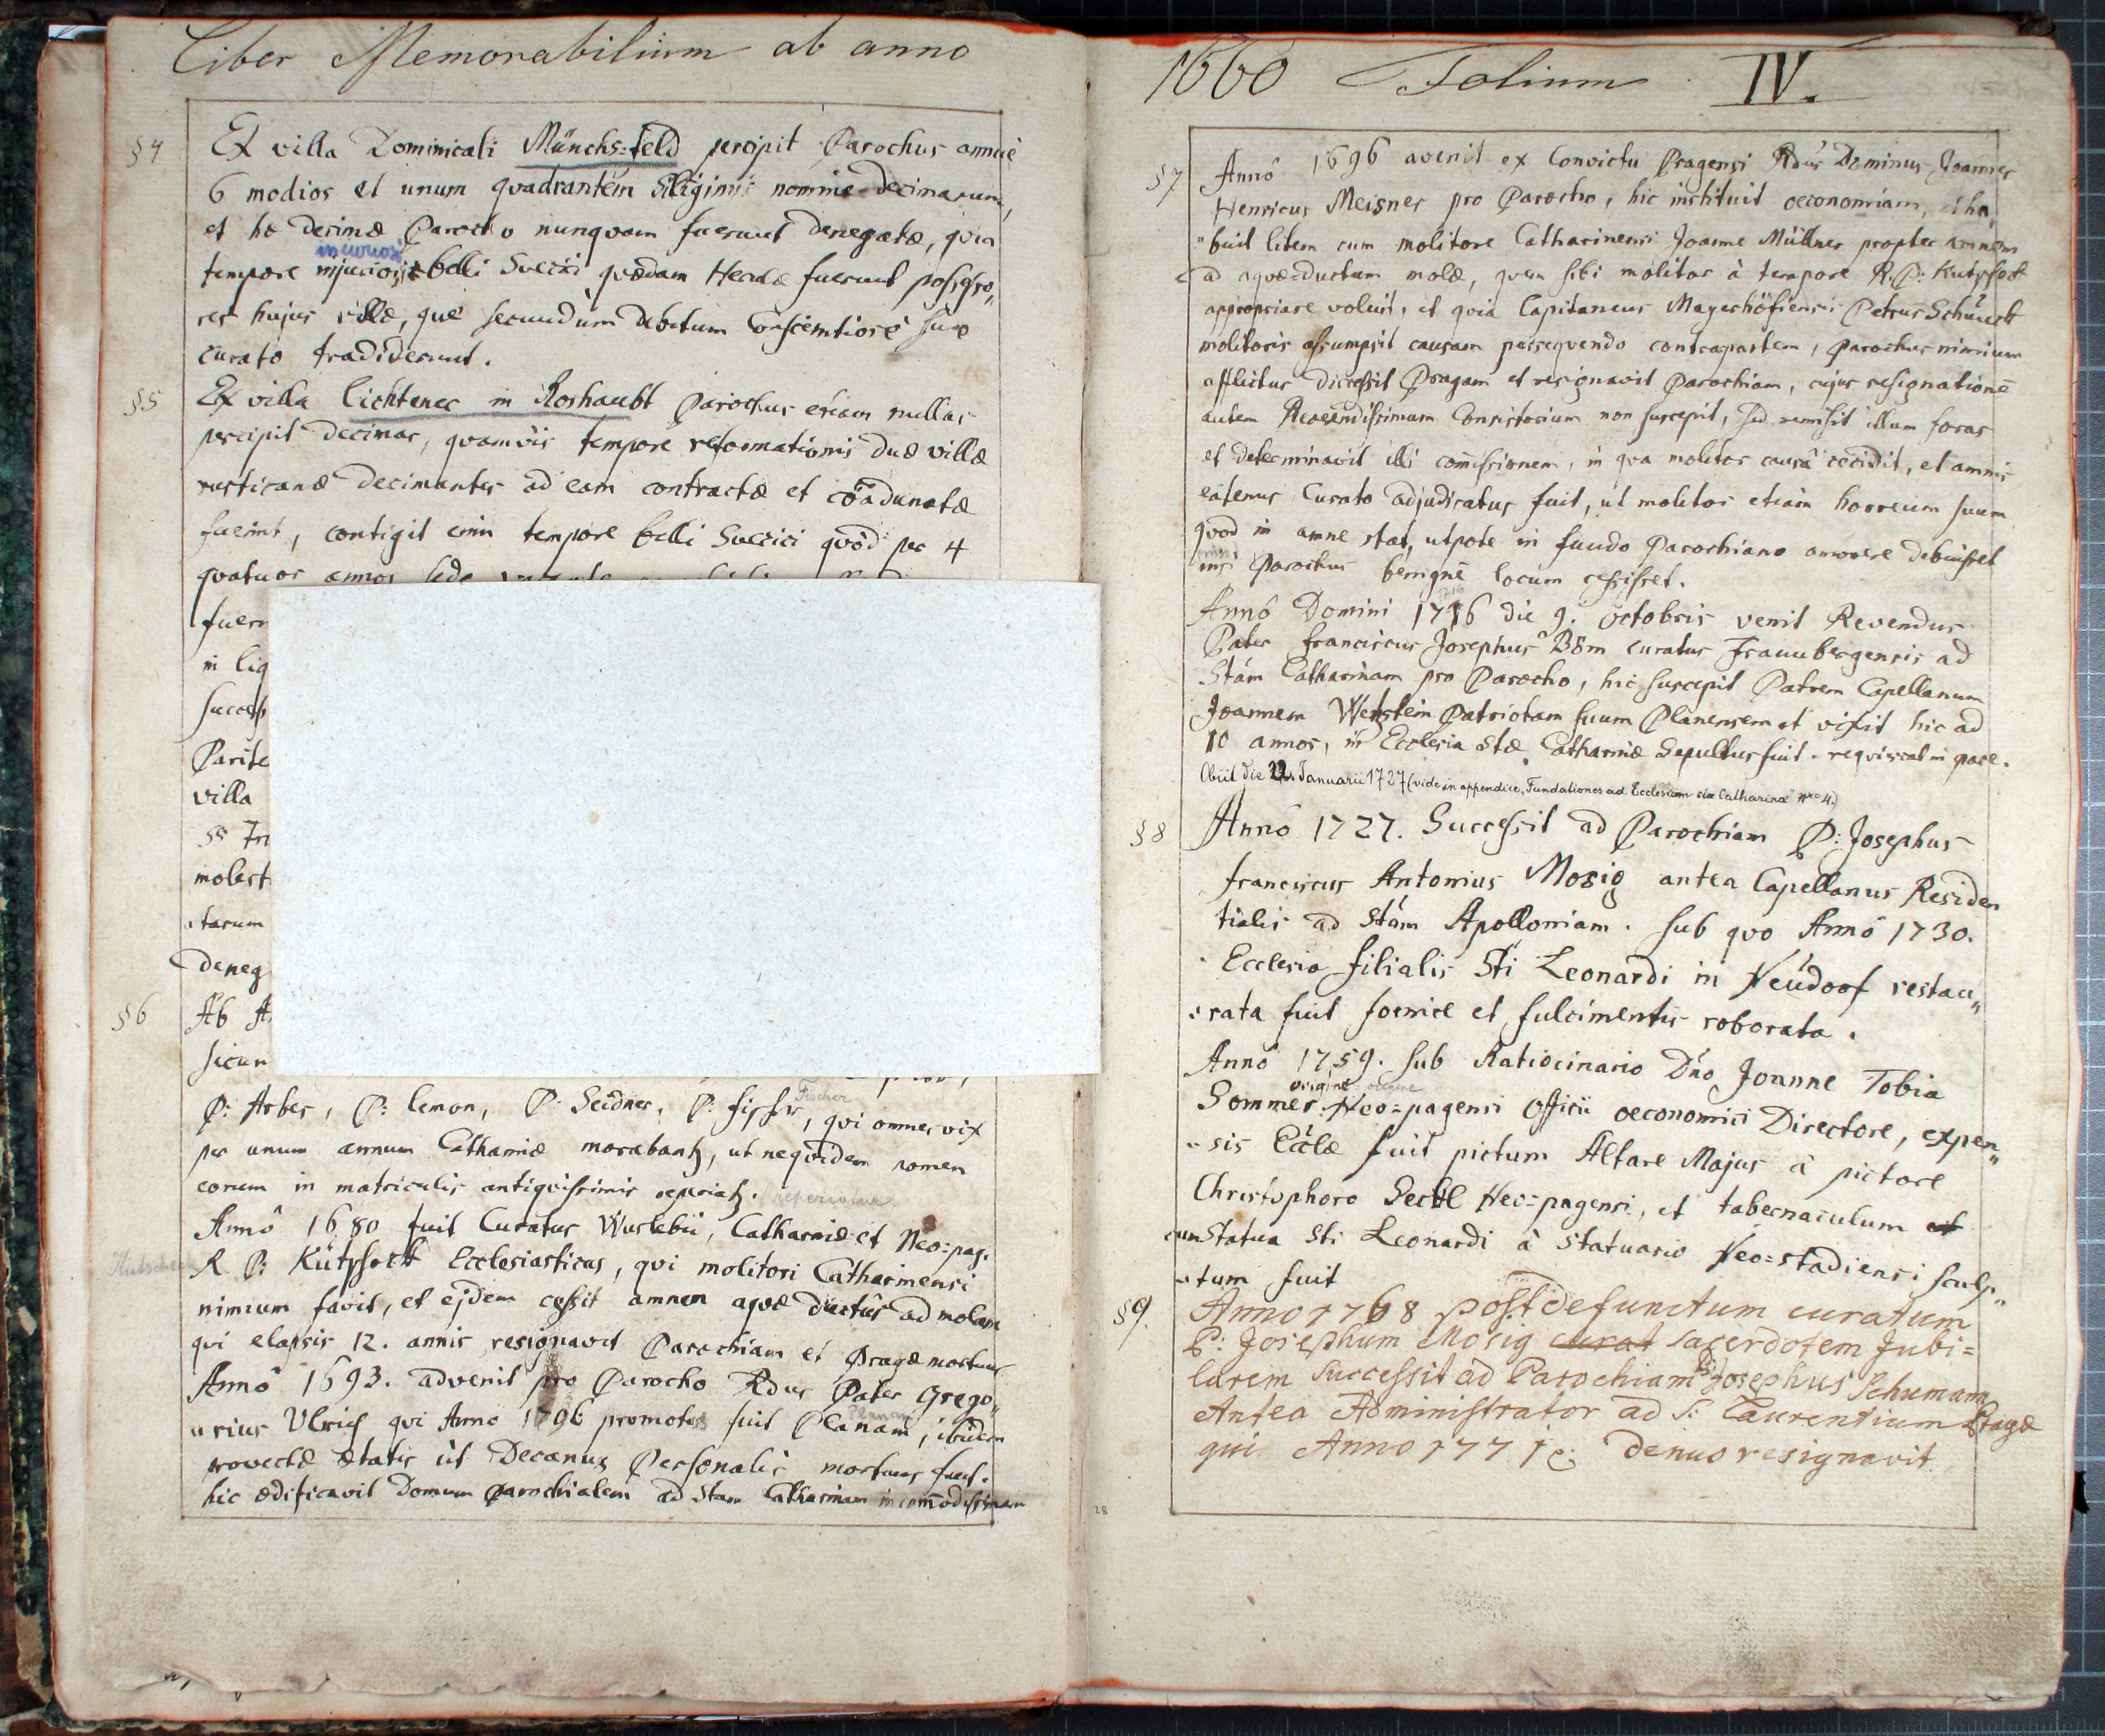 Liber Memorabilium ab anno
§4 Ex villa Dominicali Münchs=feld percipit Parochus annuè
6 modios et unum quadrantem Siliginis nomine decimarum,
et hæ decimæ Parocho nunquam fuerunt denegatæ, quia
incuriosi
tempore injuriosi belli Suecici quædam Heroidæ fuerunt possesso„
res hujus villæ, quæ secundùm debitum Conscientiose suo
curato tradiderunt.
§5 Ex villa Lichtenec in Roshaubt Parochus etiam nullas
percipit decimas, quamvis tempore reformationis duæ villæ
rusticanæ decimantes ad eam contractæ et coadunatæ
fuerint, contigit enim tempore belli Suecici quòd per 4
quatuor annos sede
fuer
in lig
success
Parite
villa
molest
tarum
deneg
§6 Ab A
sicun
Fischer
P: Arbes, P: Lemon, P: Seidner, P: fisser, qui omnes vix
per unum annum Catharinæ morabantur, ut nequidem nomen
eorum in matriculis antiquissimis reperiatur. reperiatur
Annô 1680 fuit Curatus Wuslebii, Catharinæ et Neo=pag.
R. P: Kutssett Ecclesiasticus, qui molitori Catharinensi
nimium favit, et ejdem cessit amnem aquæ ductûs ad molam
qui elapsis 12. annis resignavit Parochiam et Pragæ mortuus
Annô 1693. advenit pro Parocho Rdus Pater Grego„
„rius Ulrich qui Anno 1706 promotus fuit Planam, ibidem
provectæ ætatis ùt Decanus Personalis mortuus fuit.
hic ædificavit Domum parochialem ad Stam Catharinam incommodissimam
1660 Folium IV.
§7 Annô 1696 avenit ex Convictu Pragensi Rdus Dominus Joannes
Henricus Meisner pro Parocho, hic instituit oeconomiam, et ha„
„buit litem cum molitore Catharinensi Joanne Müllner propter amnem
ad aquæ=ductum molæ, quem sibi molitor à tempore R. P: Kutssett
appropriare voluit, et quia Capitaneus Mayerhöfiensis Petrus Schürck
molitoris assumpsit causam persequendo contrapartem, Parochus nimium
afflictus discessit Pragam et resignavit Parochiam, cujus resignationē
autem Reverendissimum Consistorium non suscepit, sed remisit illum foras
et determinavit illi com̄issionem, in qua molitor causâ cecidit, et amnis
eatenus Curato adjudicatus fuit, ut molitor etiam horreum suum
quod in amne stat, utpote in fundo Parochiano amovere debuisset
nisi Parochus benignè locum cessisset.
Annô Domini 1716 die 9. Octobris venit Revendus
Pater Franciscus Josephus Böm curatus Frauubergensis ad
Stám Catharinam pro Parocho, hic suscepit Patrem Capellanum
Joannem Wetstein Patriotam suum Planensem et vixit hic ad
10 annos, in Ecclesia Stæ Catharinæ Sepultus fuit. requiscat in pace.
Obiit die 22. Januarii 1727 (vide in appendice „Fundationes ad Ecclesiam stæ Catharinæ" Nro 4.)
§8 Annô 1727. Successit ad Parochiam P: Josephus
franciscus Antonius Mosig antea Capellanus Residen
tialis ad Stám Apolloniam. Sub quo Annô 1730.
Ecclesia filialis Sti Leonardi in Neúdorf restau„
„rata fuit fornice et fulcimentis roborata.
Annô 1759. sub Ratiocinario Dńo Joanne Tobia
origine origine
Sommer Neo=pagensi Officii oeconomici Directore, expen„
„sis Ecclæ fuit pictum Altare Majus à pictore
Christophoro Sechl Neo=pagensi, et tabernaculum et
cum Statua Sti Leonardi à Statuario Neo=stadiensi sculp„
„tum fuit
§9. Anno 1768 post defunctum curatum
P: Josephum Mosig curat sacerdotem Jubi=
larem Successit ad Parochiam P: Josephus Schumann
Antea Administrator ad S: Laurentium Pragæ
qui Anno 1771 denuo resignavit
28